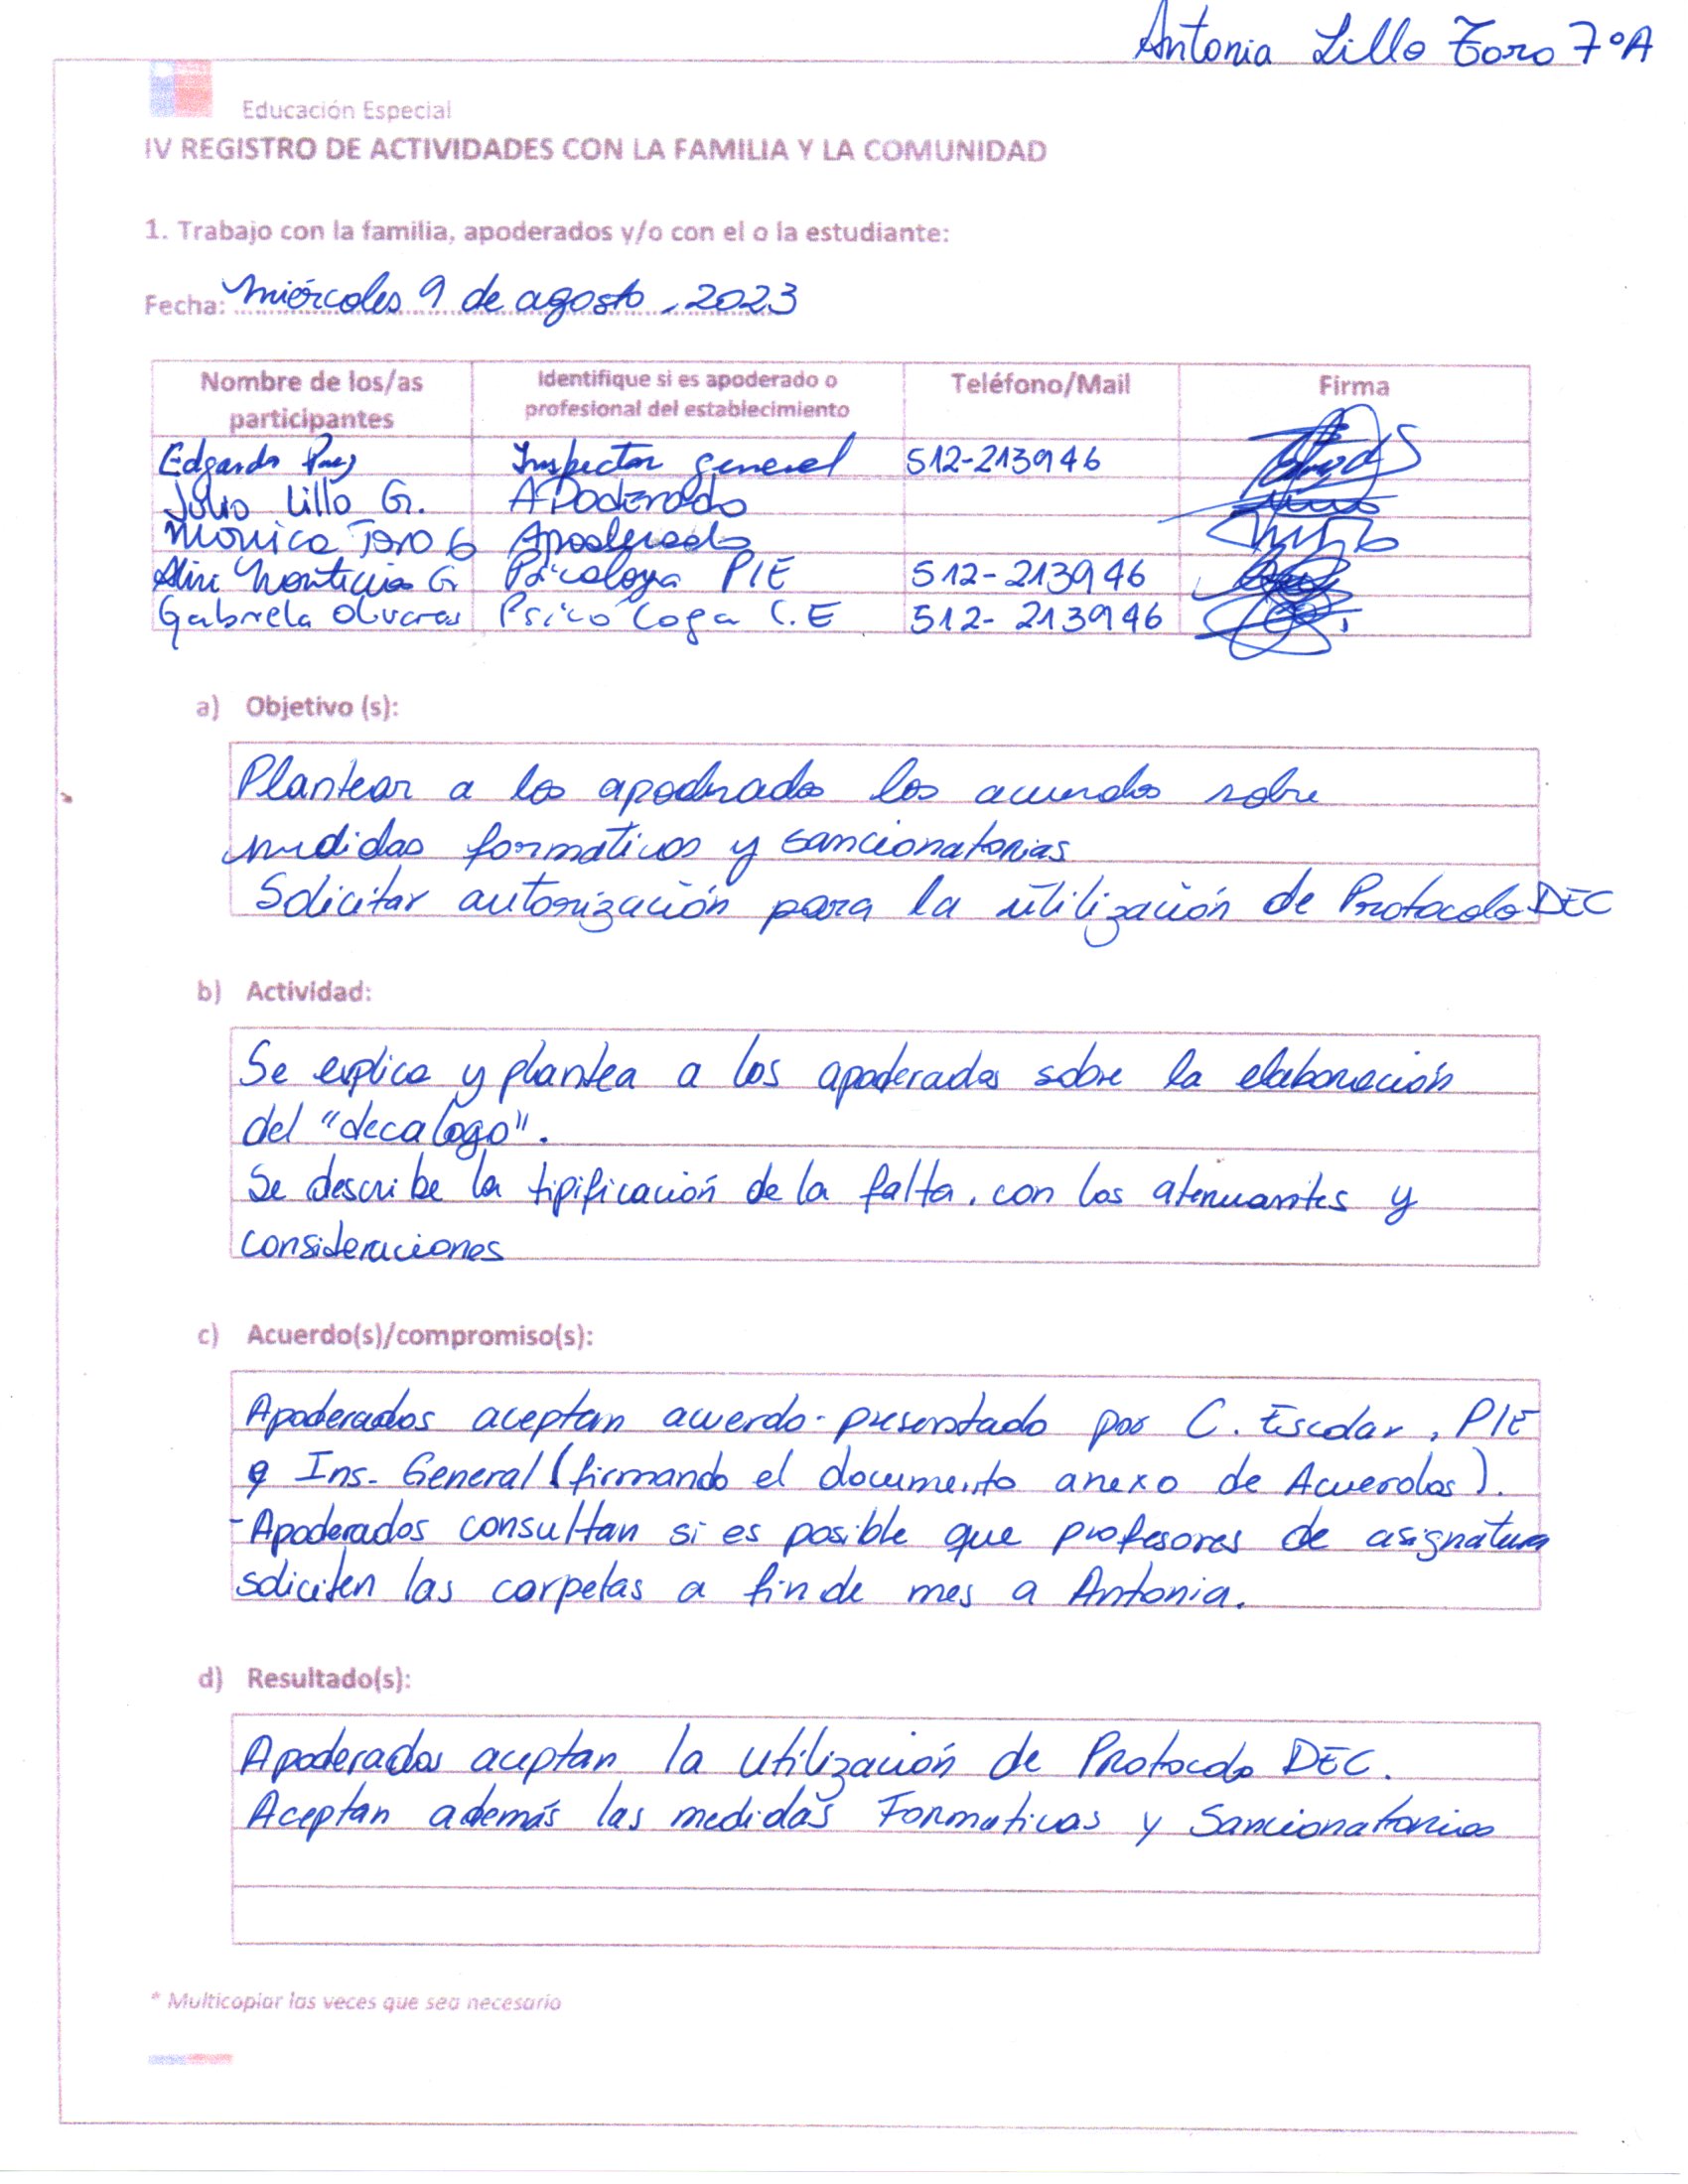 Antonia Lillo Toro 7°A
Educación Especial
IV REGISTRO DE ACTIVIDADES CON LA FAMILIA Y LA COMUNIDAD
1. Trabajo con la familia, apoderados y/o con el o la estudiante:
Fecha: miércoles 9 de agosto, 2023
Nombre de los/as participantes Identifique si es apoderado o profesional del establecimiento Teléfono/Mail Firma
Edgardo Inspector general 512-213946
Julio Lillo G. Apoderado
Monica Toro G Apoderado
G. Psicologa PIE 512-213946
Gabriela Olivares Psicóloga C.E 512-213946
a) Objetivo (s):
Plantear a los apoderados los acuerdos sobre
medidas formativas y sancionatorias
Solicitar autorización para la utilización de Protocolo DEC
b) Actividad:
Se explica y plantea a los apoderados sobre la elaboración
del "decalogo".
Se describe la tipificación de la falta, con los atenuantes y
consideraciones
c) Acuerdo(s)/compromiso(s):
Apoderados aceptan acuerdo presentado por C. Escolar, PIE
e Ins. General (firmando el documento anexo de Acuerdos).
- Apoderados consultan si es posible que profesores de asignatura
soliciten las carpetas a fin de mes a Antonia.
d) Resultado(s):
Apoderados aceptan la utilización de Protocolo DEC.
Aceptan además las medidas Formativas y Sancionatorias
* Multicopiar las veces que sea necesario